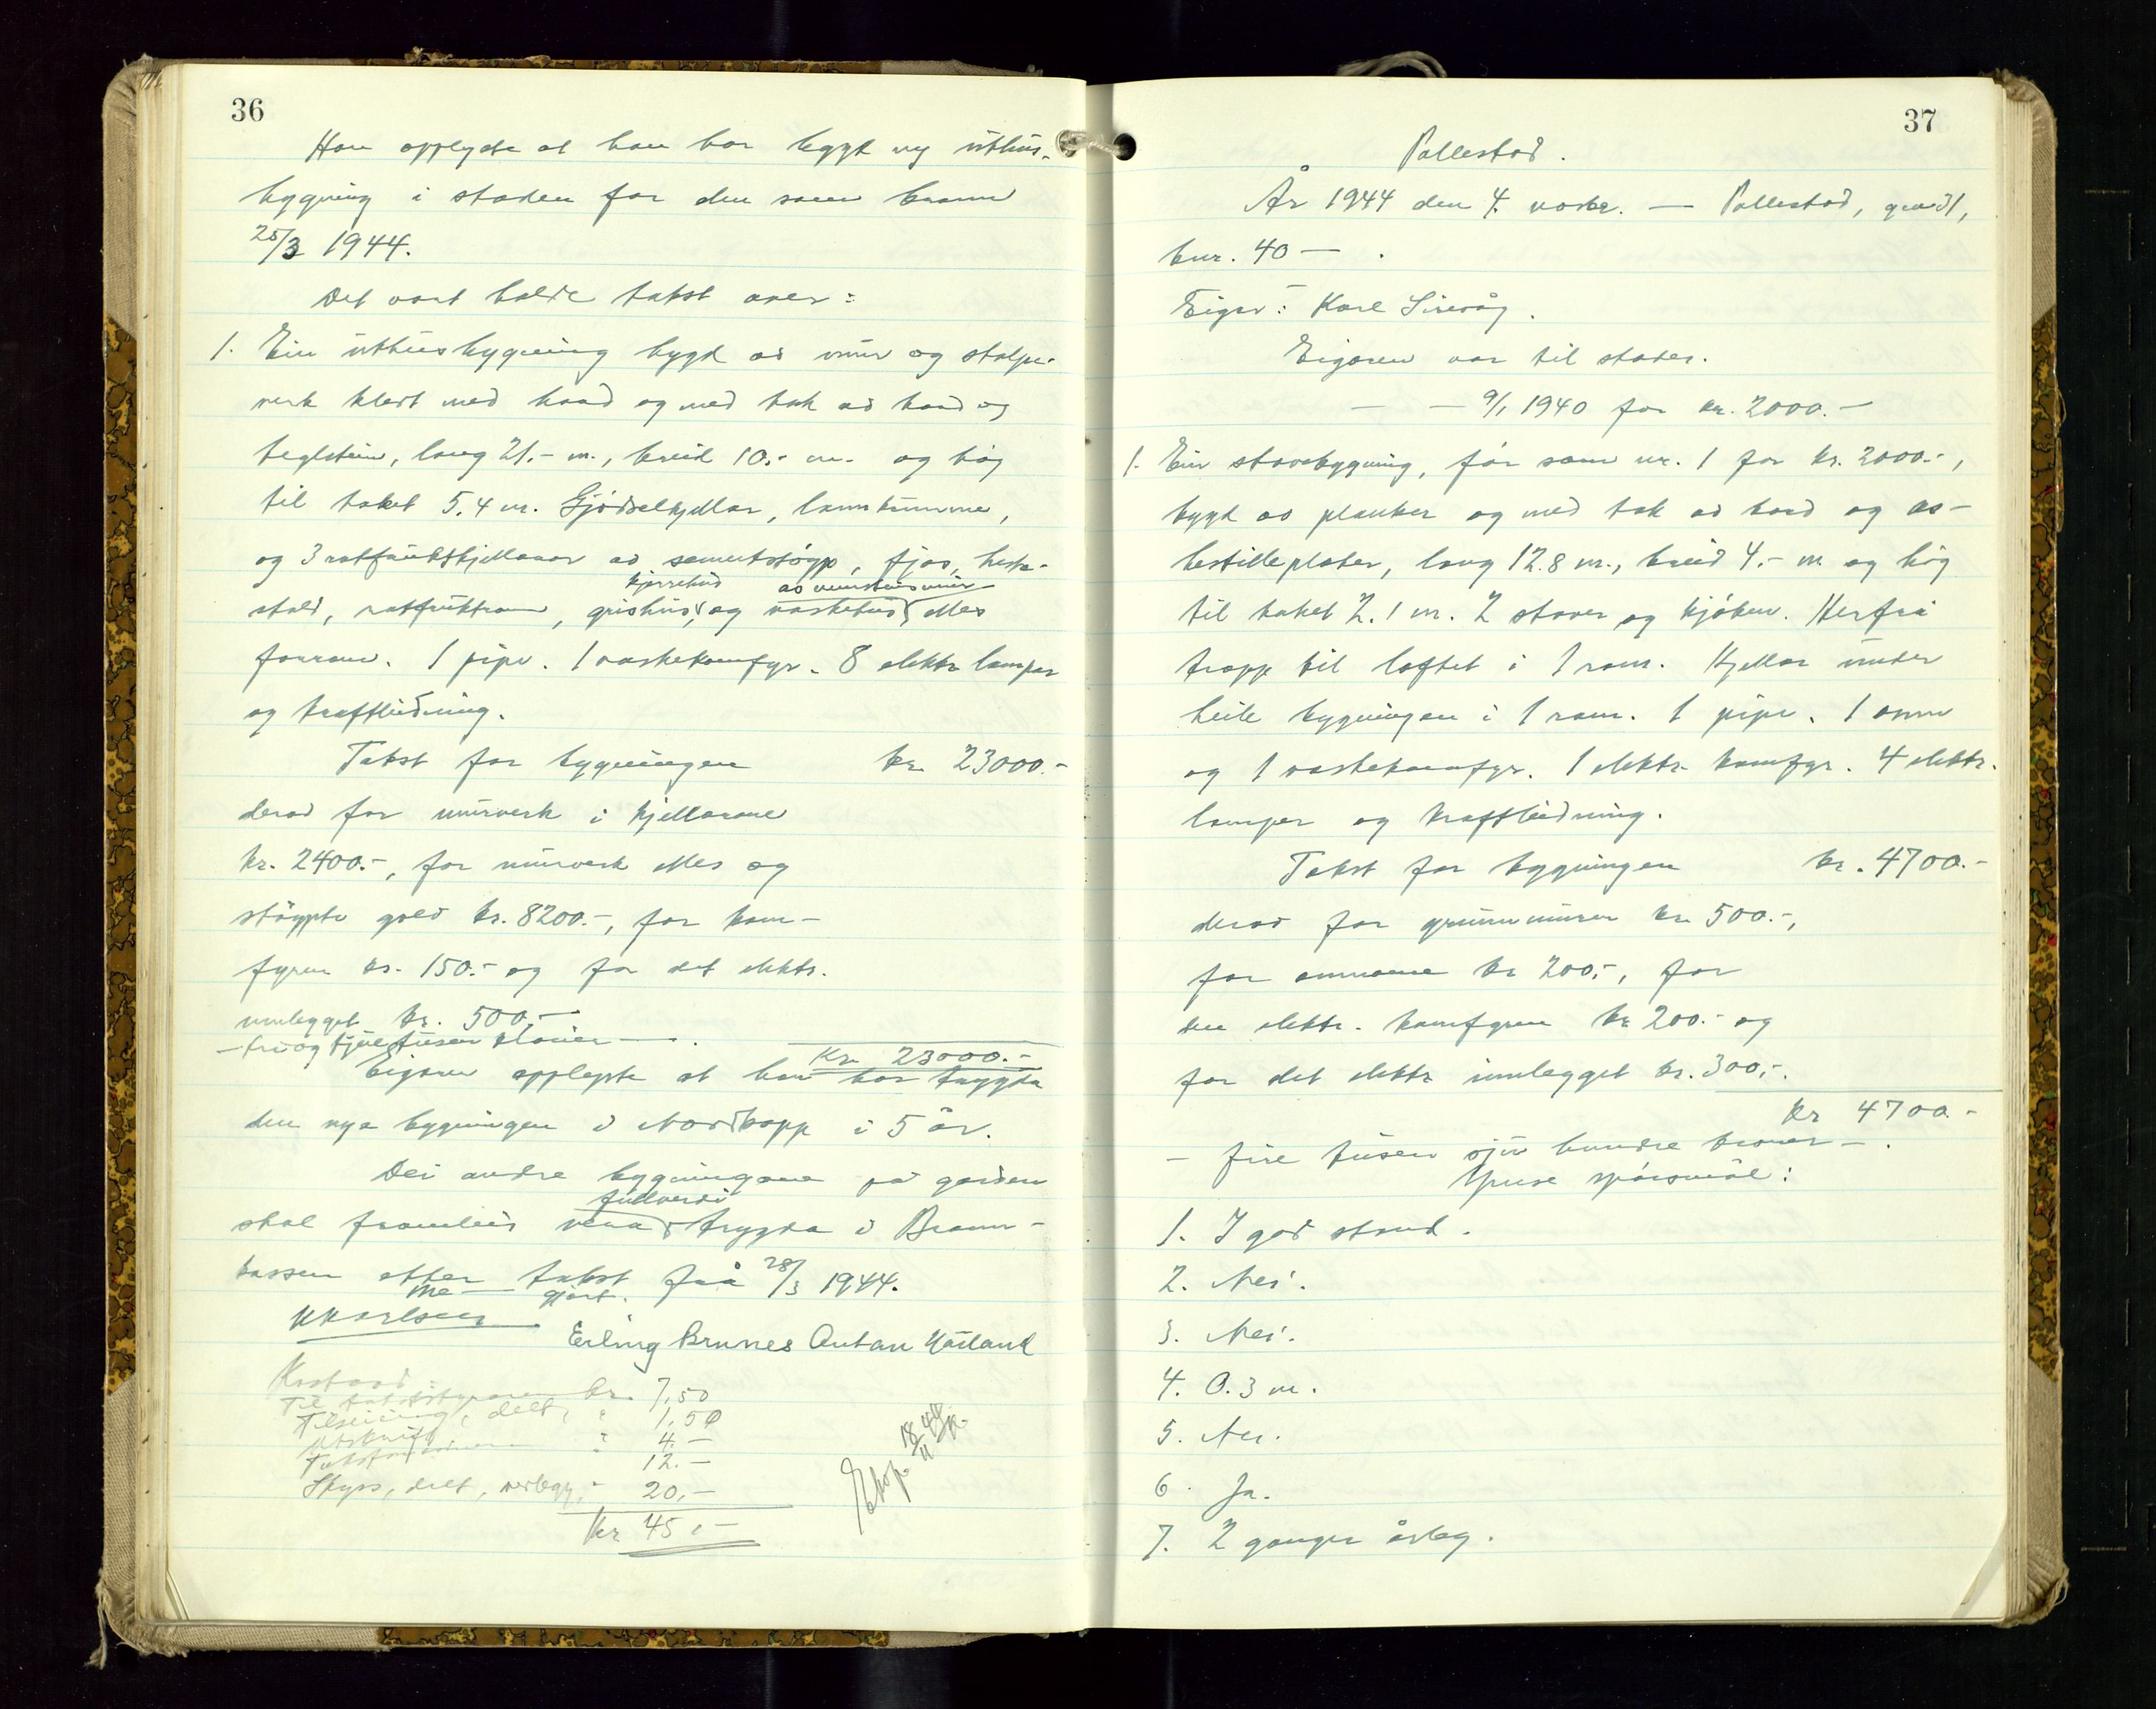 36
Han opplyste at han har bygt ny uthus-
bygning i staden for den som brann
25/3 1944.
Det vart halde takst over:
1. Ein uthusbygning bygd av mur og stolpe-
verk kledt med bord og med tak av bord og
teglstein, lang 21.- m., breid 10.- m. og høg
til taket 5.4 m. Gjødselkjellar, landkumme,
og 3 rotfruktkjellarar av sementstøyp, fjøs, heste-
kjerrehus av murstensmur
stall, rotfruktrom, grishus, og vaskehus elles
forrom. 1 pipe. 1 vaskekomfyr. 8 elektr lamper
og kraftleidning.
Takst for bygningen kr. 23000.-
derav for murverk i kjellarane
kr. 2400.-, for murverk elles og
støypte golv kr. 8200.-, for kom-
fyren kr. 150.- og for det elektr.
innlegget kr. 500.-
- tre og tjue tusen kroner - .
Kr. 23000.-
Eigaren opplyste at han har trygda
den nye bygningen i Nordkapp i 5 år.
Dei andre bygningane på garden
fullverdi
skal framleis vera trygda i Brann-
kassen etter takst frå 28/3 1944.
Me — gjort.
K Karlsen
Erling Brunes Anton Håland
Kostnad:
Til takststyraren kr. 7,50
Tilseiing, delt, " 1,50
Utskrift " 4.-
Takstmennene 12.-
Skyss, delt, vedlegg, - 20,-
Kr 45.-
Eksp. 18/11 44
37
Pallestad.
År 1944 den 4. novbr. — Pallestad, gnr 31,
bnr. 40 — .
Eigar: Karl Sirevåg.
Eigaren var til stades.
— — 9/1 1940 for kr. 2000.-
1. Ein stovebygning, før som nr. 1 for kr. 2000.-,
bygd av planker og med tak av bord og as-
bestilleplater, lang 12.8 m., breid 4.- m og høg
til taket 2.1 m. 2 stover og kjøken. Herfrå
trapp til loftet i 1 rom. Kjellar under
heile bygningen i 1 rom. 1 pipe. 1 omn
og 1 vaskekomfyr. 1 elektr komfyr. 4 elektr.
lamper og kraftleidning.
Takst for bygningen kr. 4700.-
derav for grunnmuren kr 500.-,
for omnane kr 200.-, for
den elektr. komfyren kr 200.- og
for det elektr innlegget kr. 300,-.
Kr 4700.-
- fire tusen sju hundre kroner - .
Ymse spørsmål:
1. I god stand.
2. Nei.
3. Nei.
4. 0.3 m.
5. Nei.
6. Ja.
7. 2 ganger årleg.